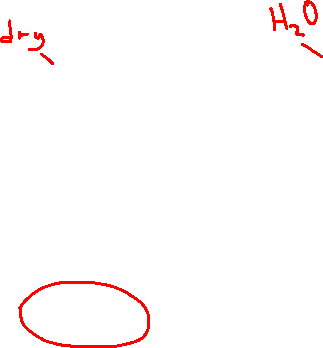 dry
H₂O